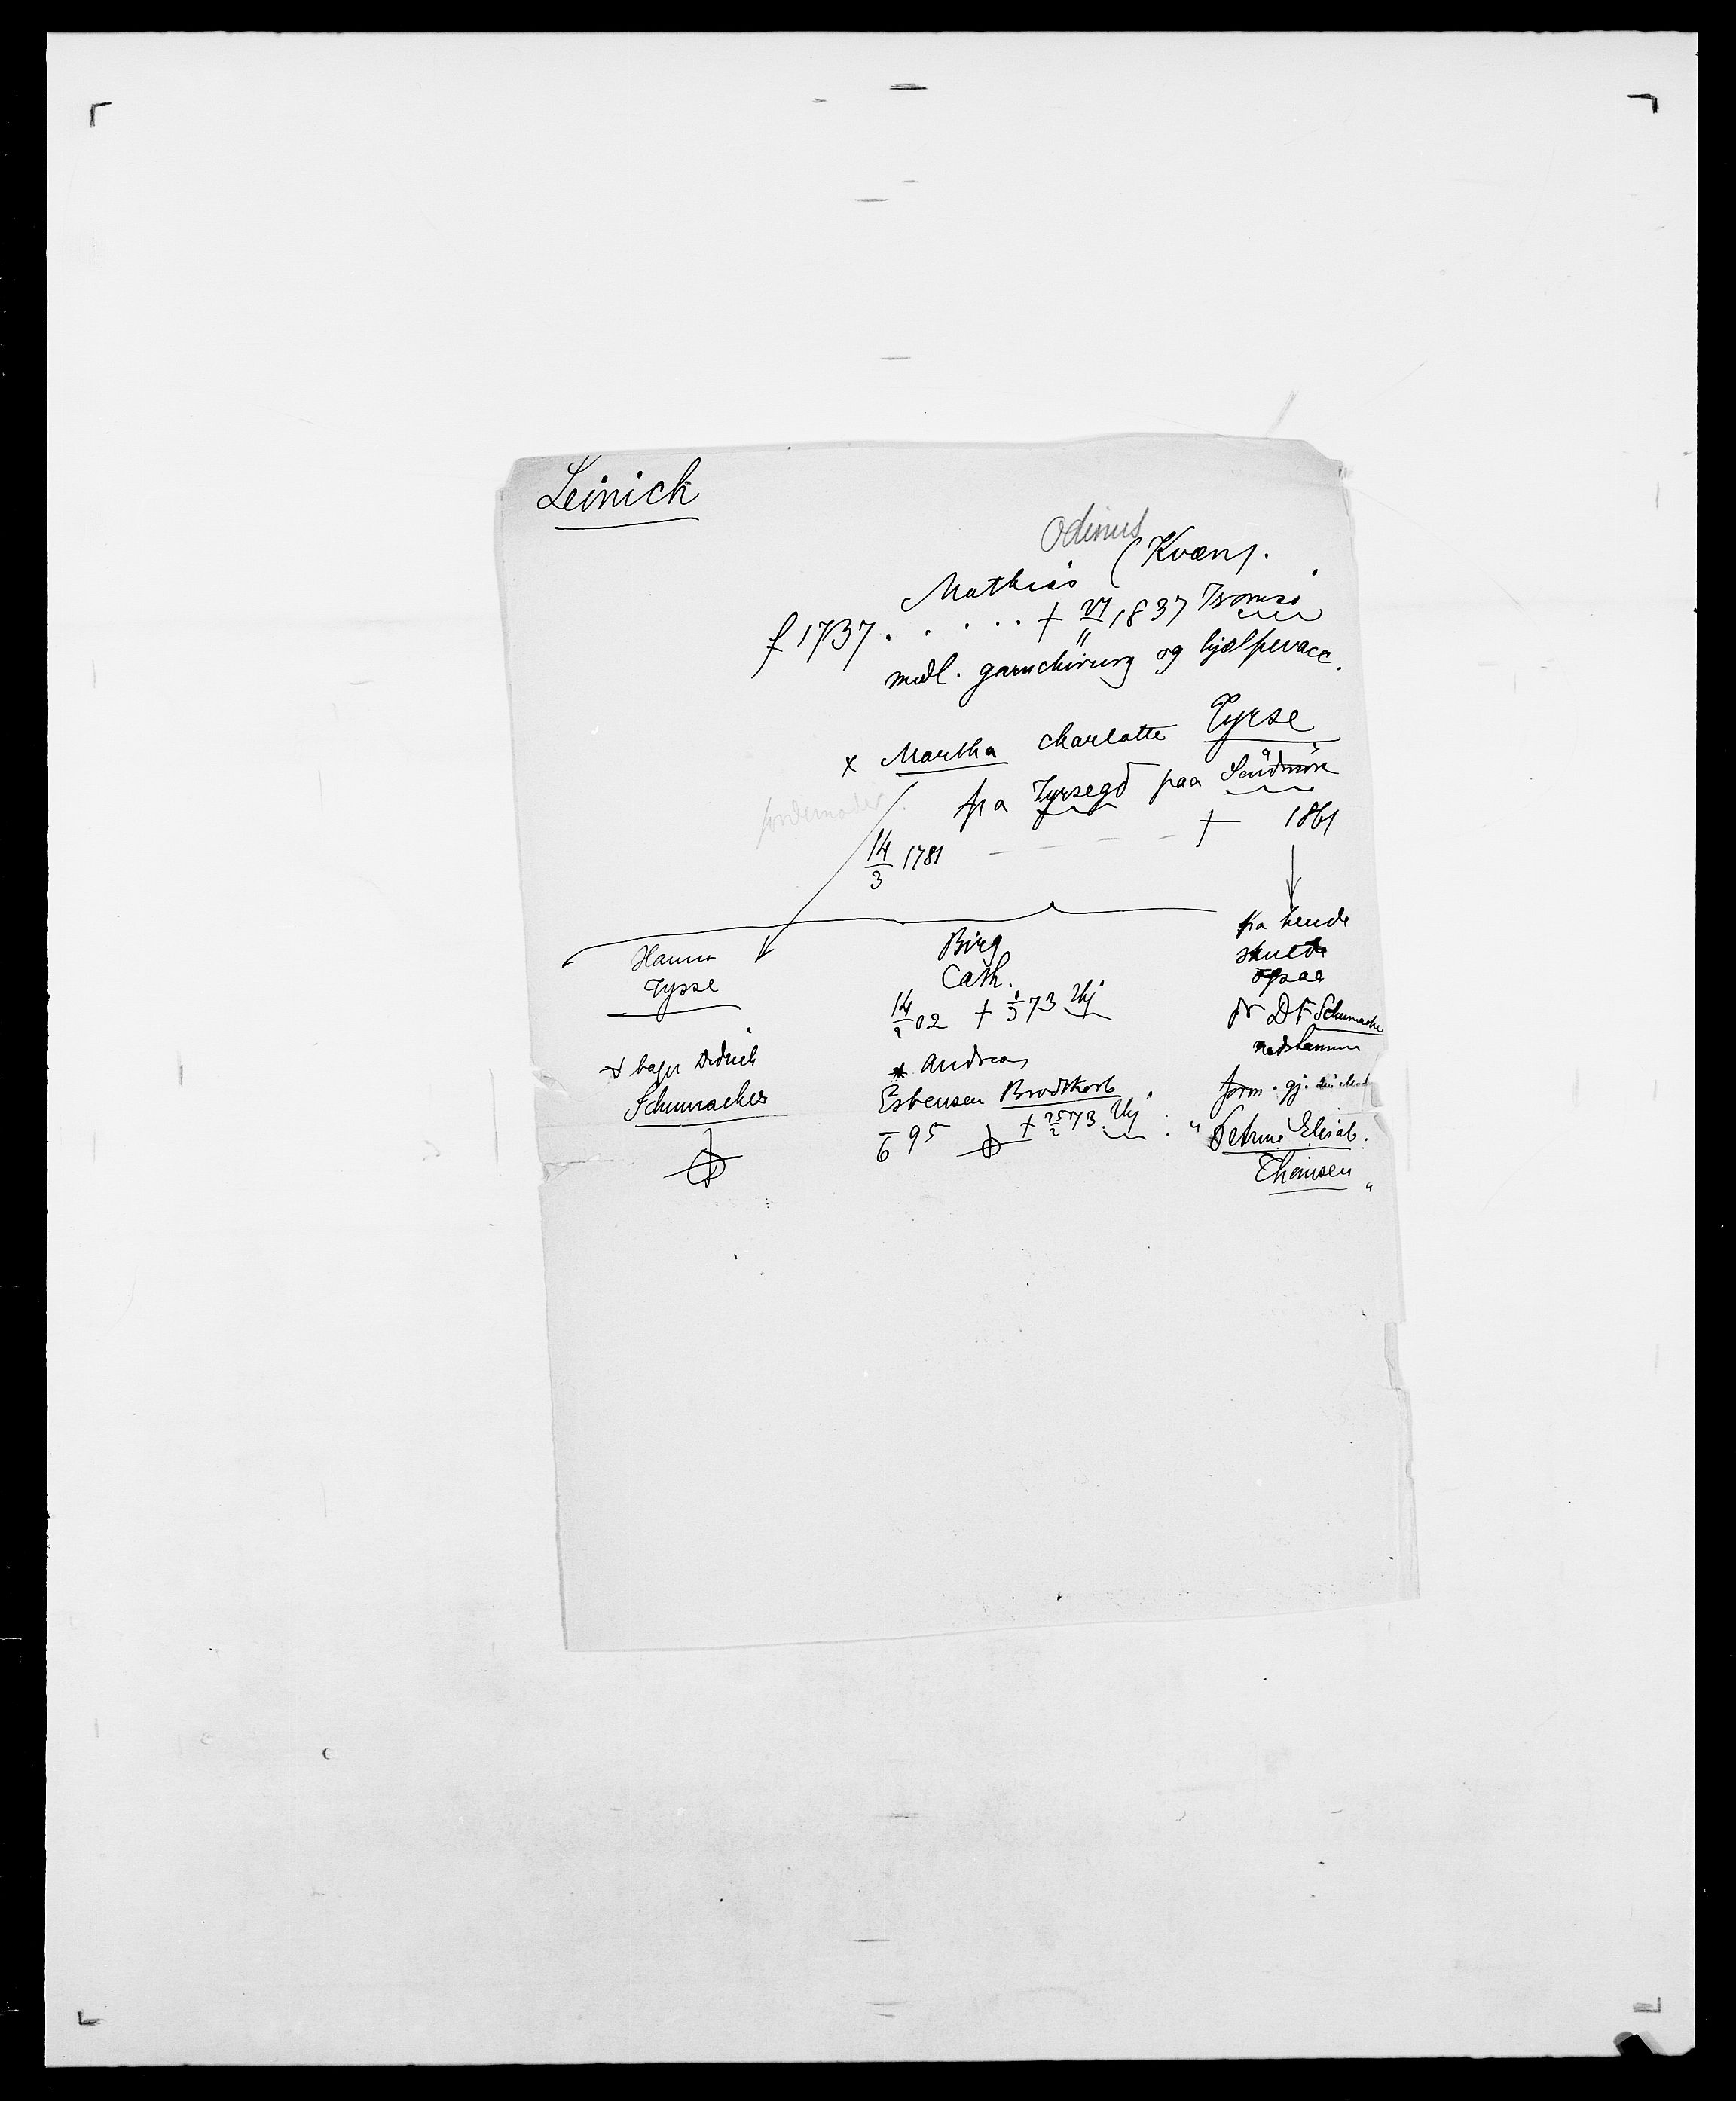 Leinick
Odinus
Mathias (Kvæn).
f 1737 . . . . . † 21/11 1837 Tromsö
mdl. garnchirurg og hjælpevacc.
x Martha Charlotte Tyrse
fra Tyrsegd paa Söndmör
14/3 1781 - - - - † 1861
Hanna
Tysse
x bager Didrich
Schumacher
Birg
Cath.
14/9 02 † 1/3 73 Hj
* Andreas
Esbensen Brodtkorb
6 95 † 25/2 73. Hj.
fra hende
skulde
ogsaa
fr D F Schumacher
nedstamme
form. gj.
"Petrine Elisab.
Thomsen"